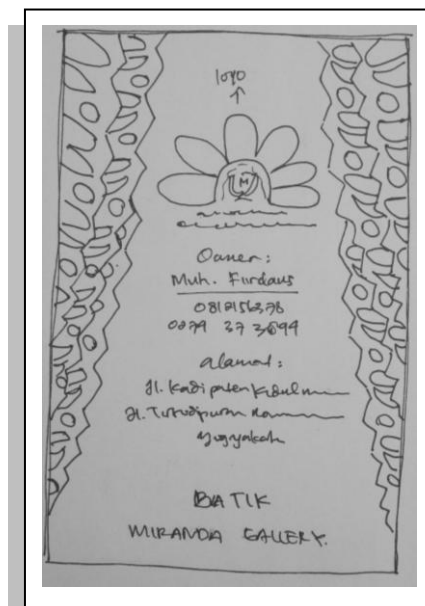 logo
M
Owner:
Muh. Firdaus
0812156378
alamat:
Jl. Kadipaten Kidul
Jl. Tirtodipuran
Yogyakarta
BATIK
MIRANDA GALLERY.